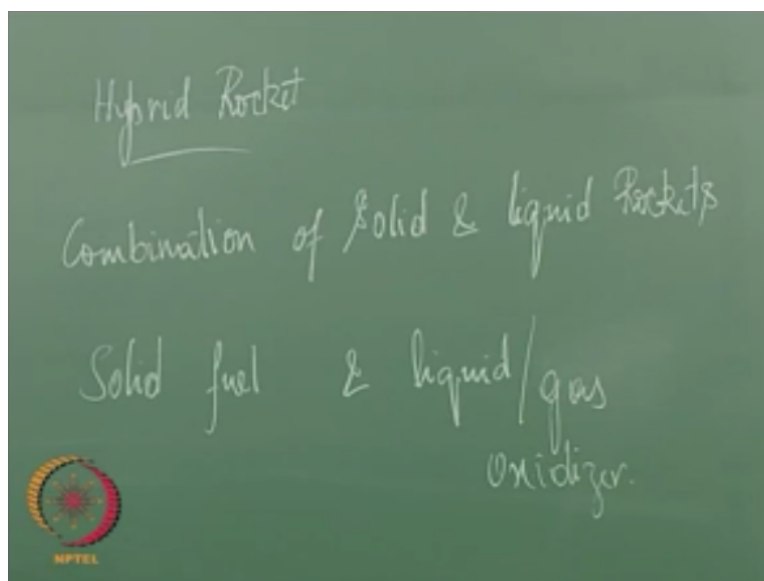 Hybrid Rocket
Combination of Solid & liquid Rockets
Solid fuel & liquid/gas
Oxidizer.
NPTEL